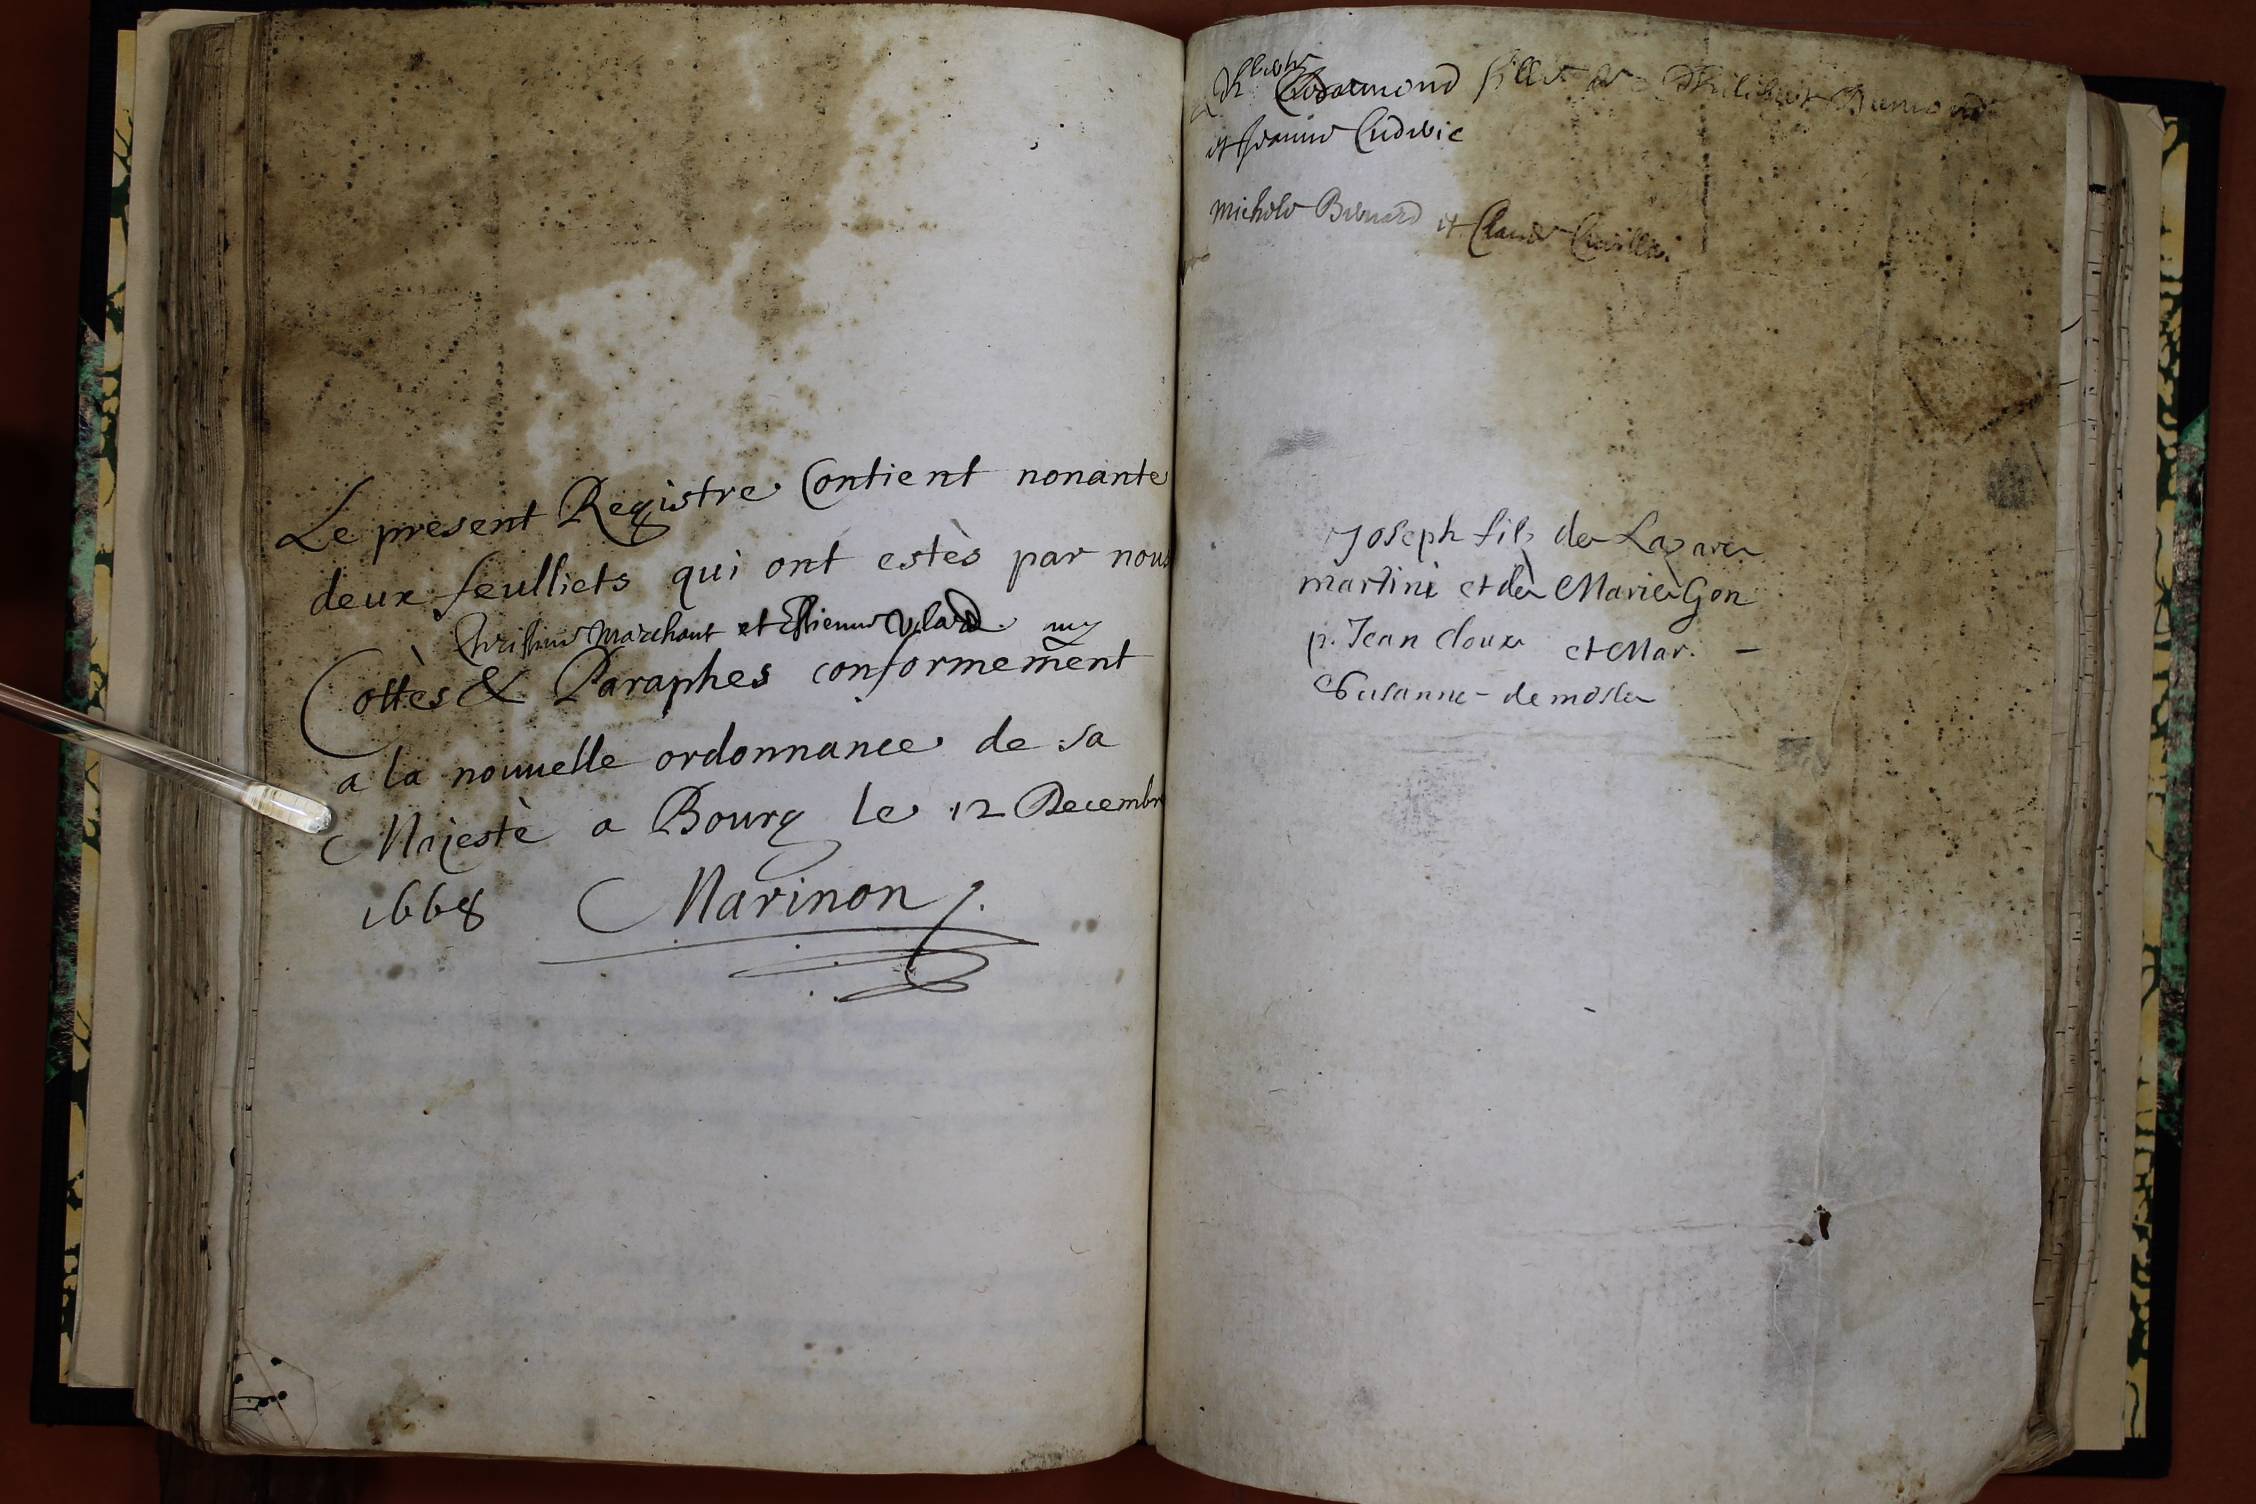 Le present Registre Contient nonante
deux feulliets qui ont estès par nous
Marchant et Estienne
Cottès & Paraphes conformement
a la nouuelle ordonnance de sa
Majestè a Bourg le 12 Decembre
1668 Marinon
fille de Philibert Dumond
et Jeanne
Michele Bernard et Claude
Joseph fils de Lazare
martini et de Marie Gon
p. Jean cloux et Mar. -
Susanne - de